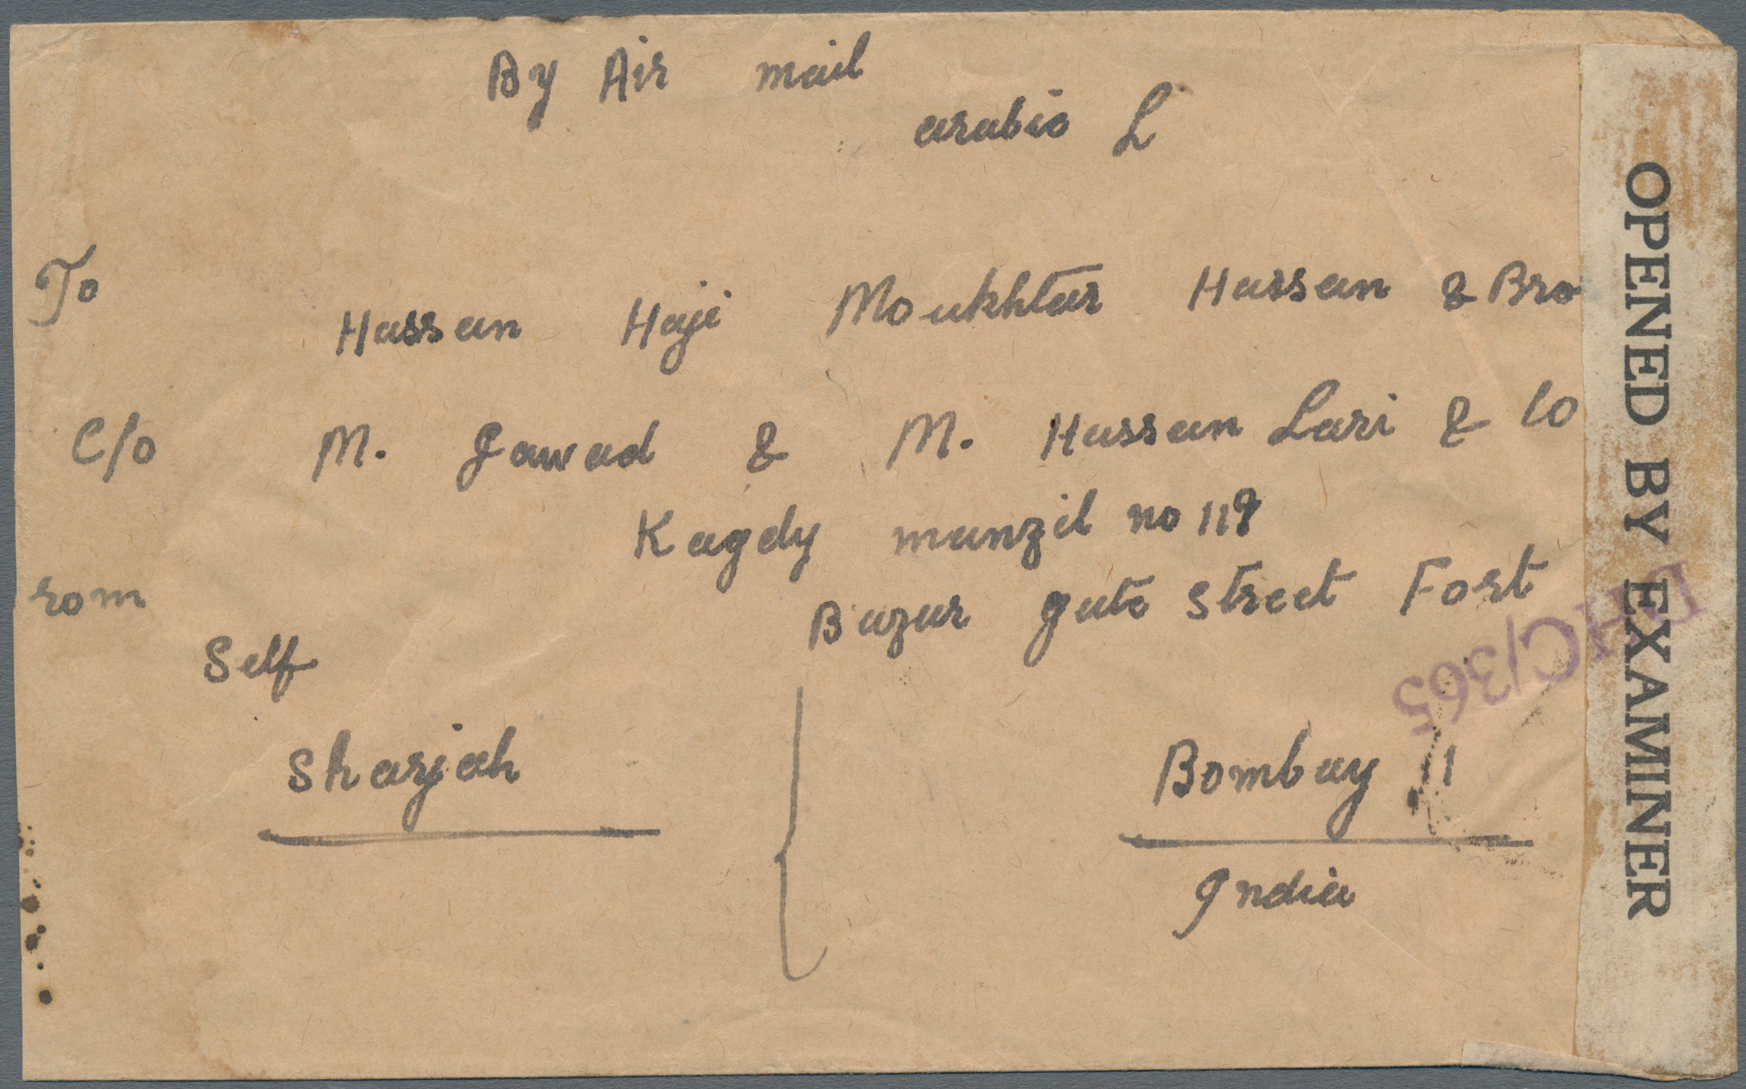 By Air mail
arabic L
To
Hassan Haji Moukhtar Hassan & Bro
C/o M. Jawad & M. Hassan Lari & Co
Kagdy manzil no 119
rom
Bazar gate street Fort
Self
Sharjah
Bombay 1
India
OPENED BY EXAMINER
C/365